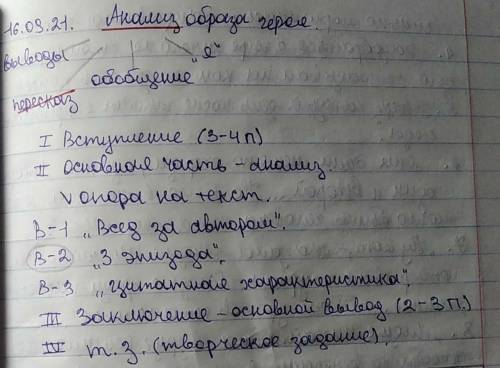 16.09.21. Анализ образа героя.
выводы "Я"
обобщение
пересказ
I Вступление (3-4 п)
II основная часть - анализ.
V опора на текст.
В-1 "Вслед за автором".
В-2 "3 эпизода".
В-3 "Цитатная характеристика".
III Заключение - основной вывод (2-3 п.)
IV т.з. (творческое задание).